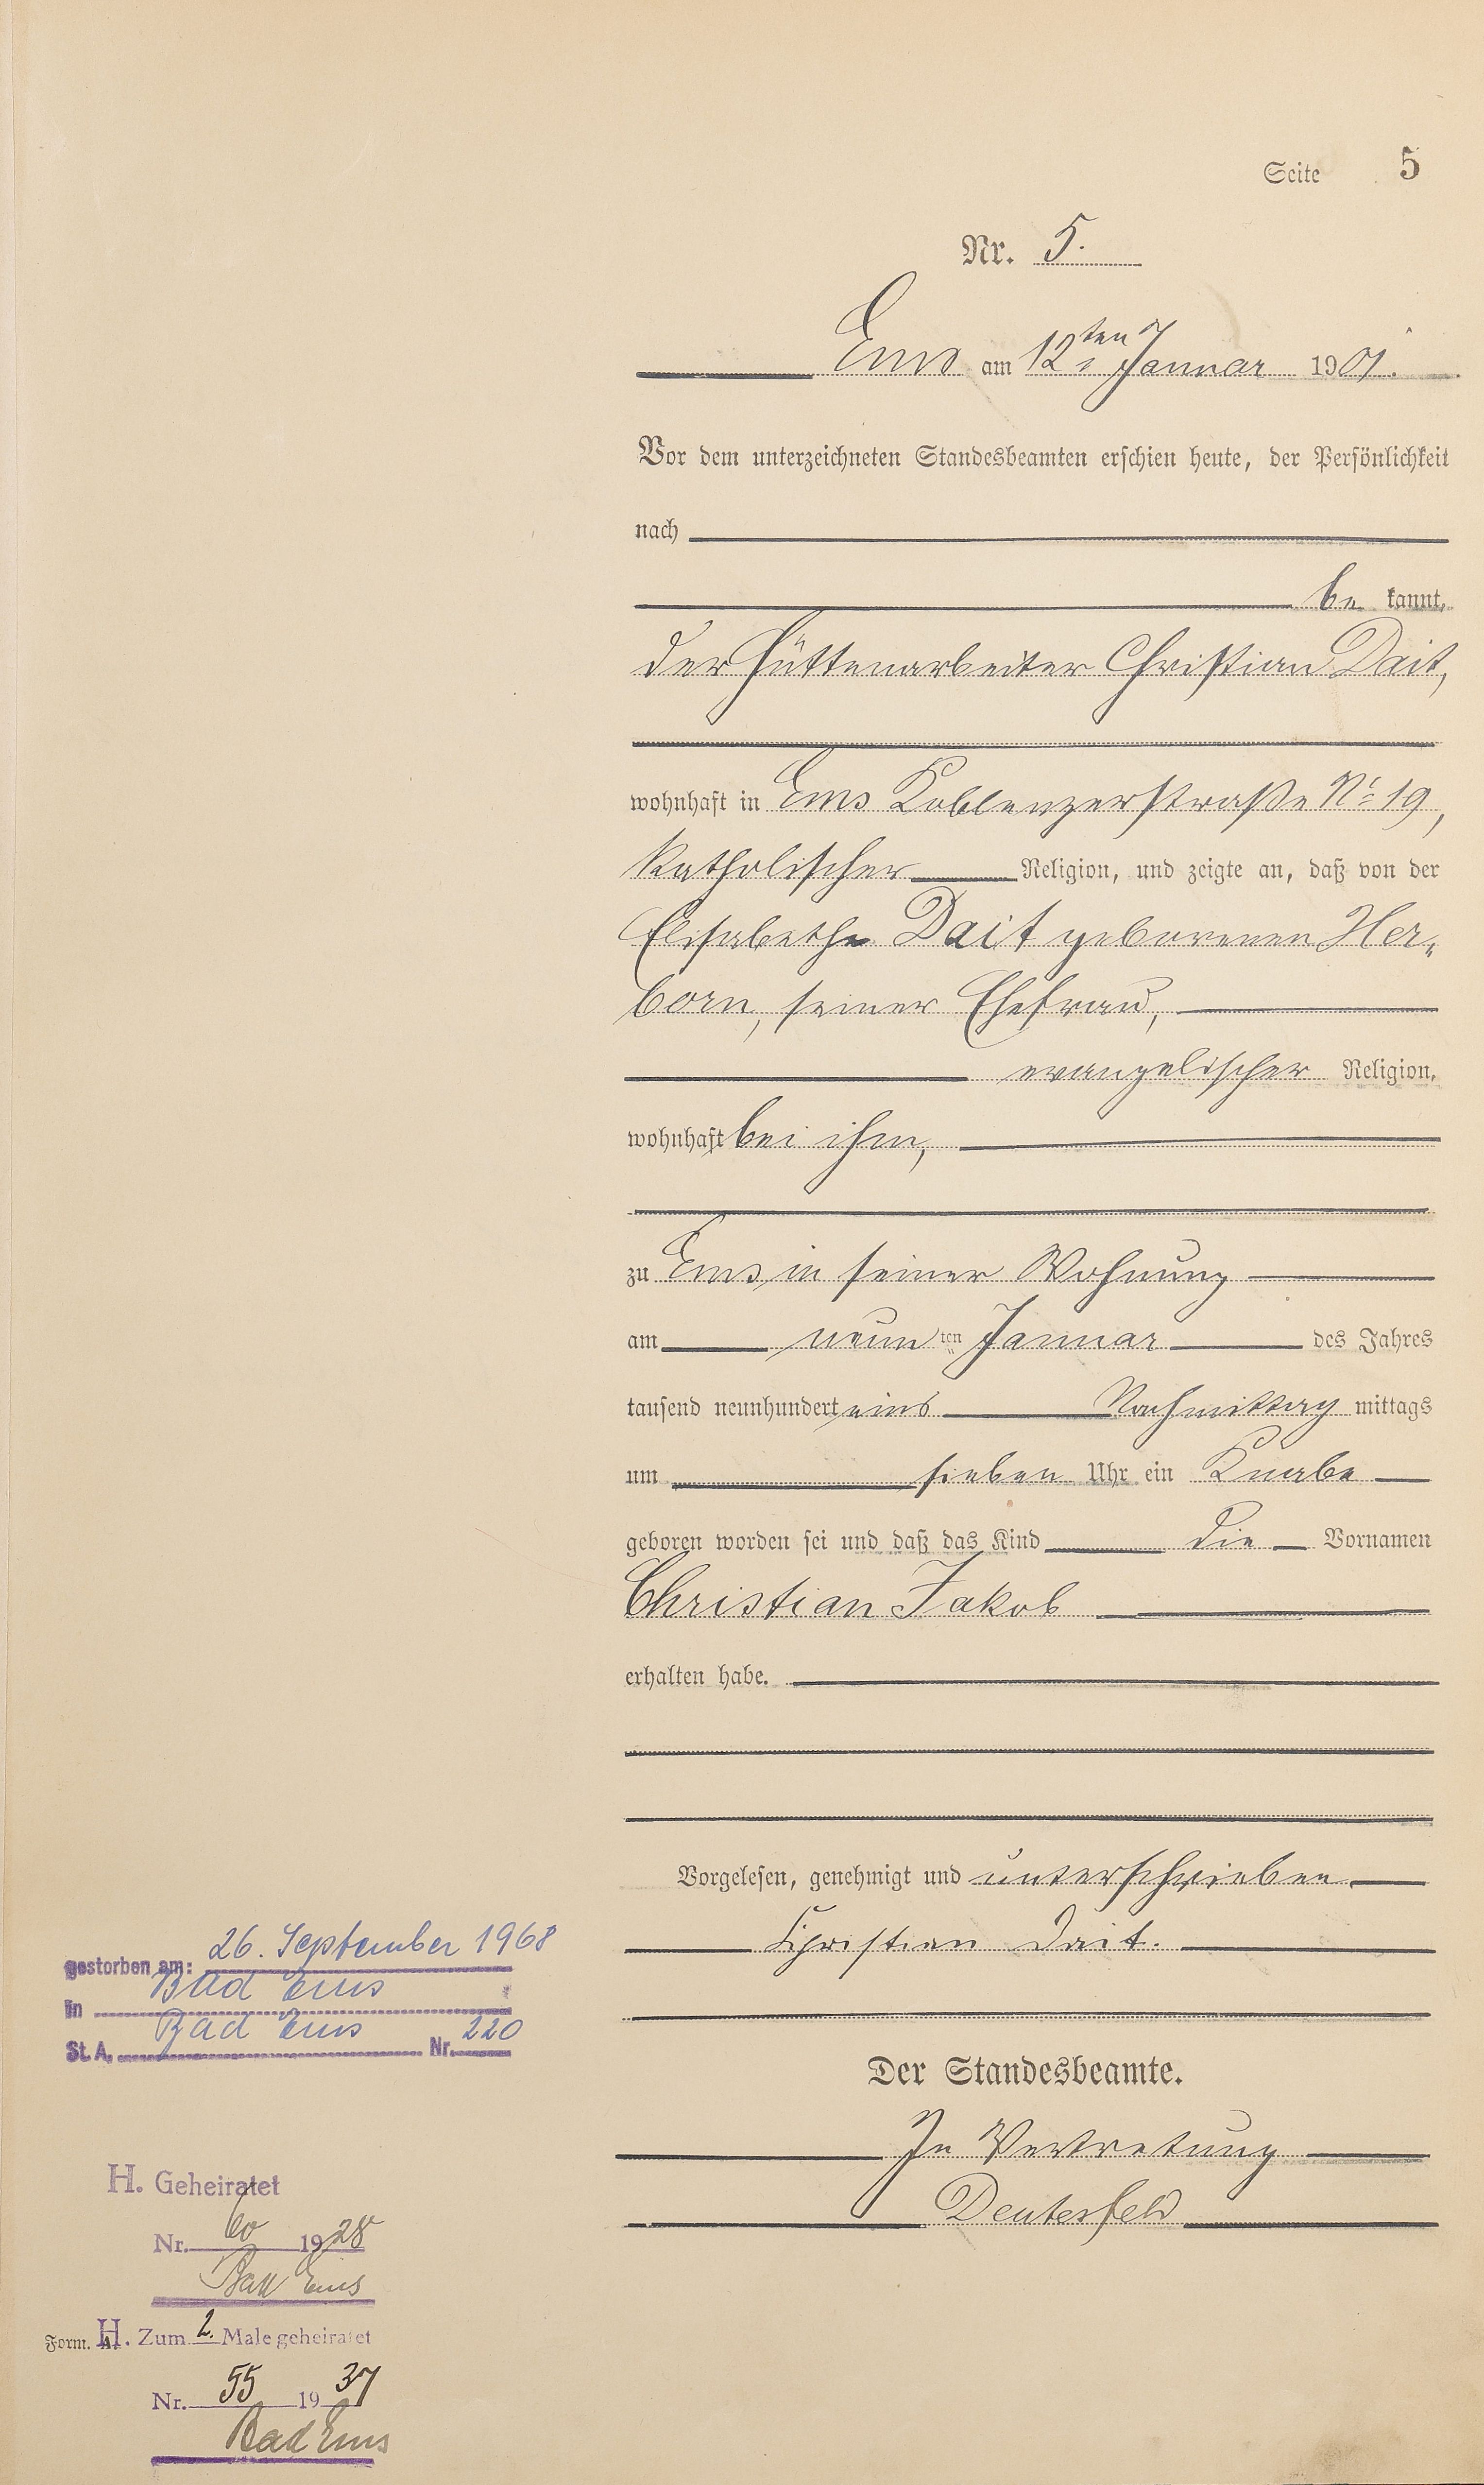 Seite 5
Nr. 5.
Ems am 12ten Januar 1901.
Vor dem unterzeichneten Standesbeamten erschien heute, der Persönlichkeit
nach
be kannt,
der Hüttenarbeiter Christian Dait,
wohnhaft in Ems Koblenzerstraße No 19,
katholischer Religion, und zeigte an, daß von der
Elisabethe Dait geborenen Her-
born, seiner Ehefrau,
evangelischer Religion,
wohnhaft bei ihm,
zu Ems in seiner Wohnung
am neun ten Januar des Jahres
tausend neunhundert eins Nachmittag mittags
um sieben Uhr ein Knabe
geboren worden sei und daß das Kind die Vornamen
Christian Jakob
erhalten habe.
Vorgelesen, genehmigt und unterschrieben
Christian Dait.
Der Standesbeamte.
In Vertretung
Deutesfeld
gestorben am: 26. September 1968
in Bad Ems
St. A. Bad Ems Nr. 220
H. Geheiratet
Nr. 60 1928
Bad Ems
Form. H. Zum 2. Male geheiratet
Nr. 55 1937
Bad Ems